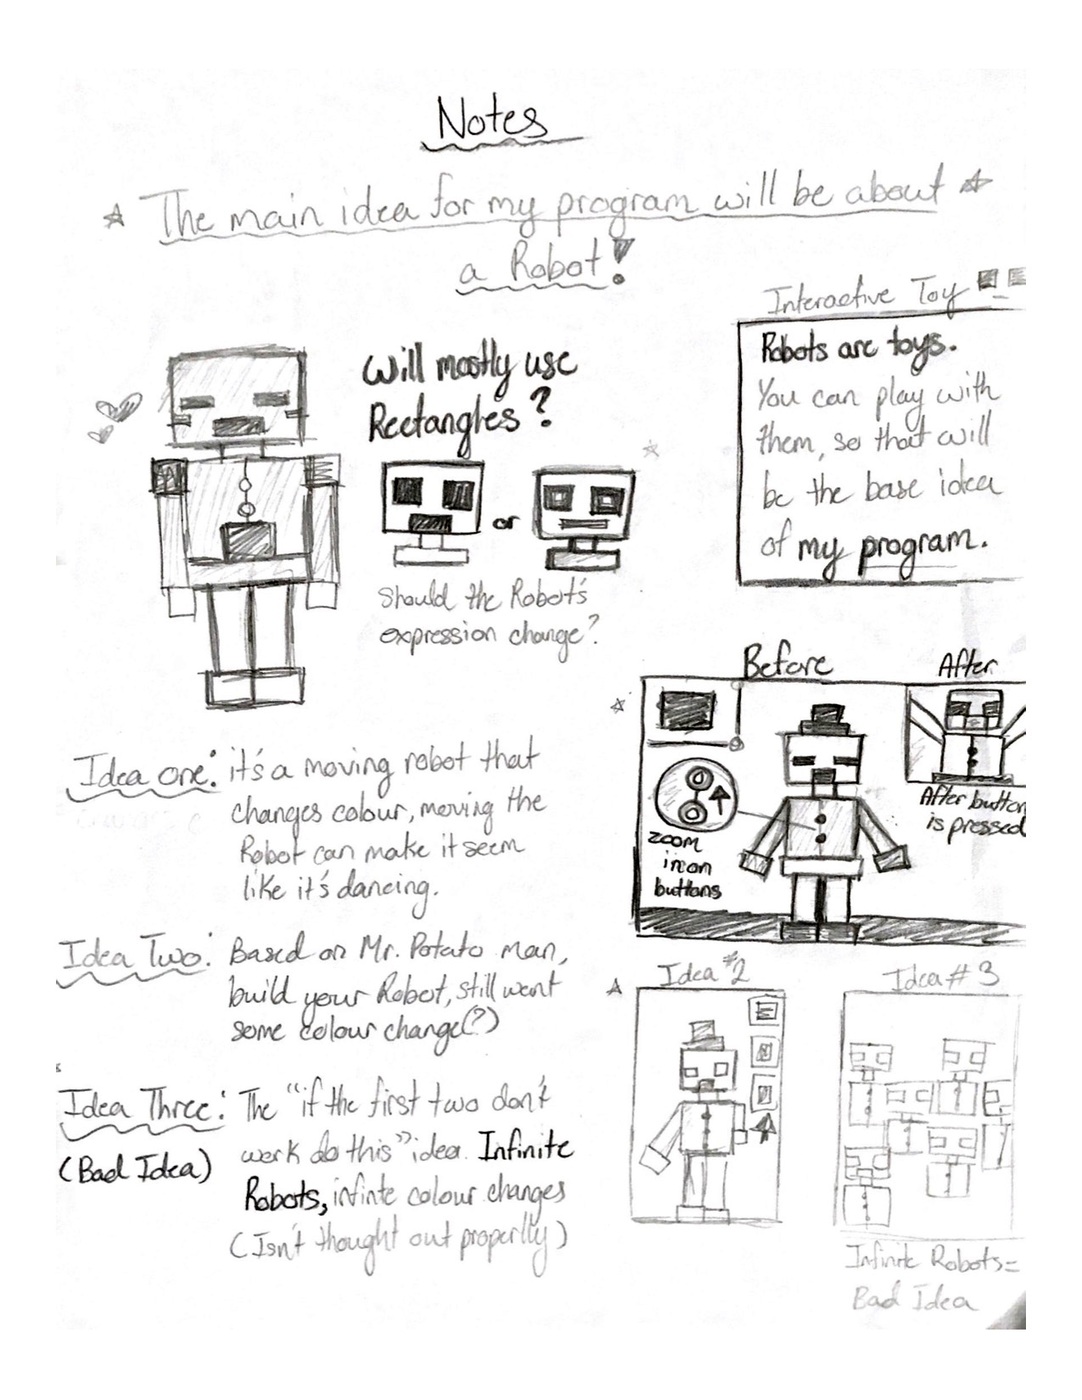 Notes
The main idea for my program will be about
a Robot!
Interactive Toy
Robots are toys.
You can play with
them, so that will
be the base idea
of my program.
Will mostly use
Rectangles?
or
Should the Robot's
expression change?
Before
After
zoom
in on
buttons
After button
is pressed
Idea one: it's a moving robot that
changes colour, moving the
Robot can make it seem
like it's dancing.
Idea Two: Based on Mr. Potato man,
build your Robot, still want
some colour change(?)
Idea Three: The "if the first two don't
(Bad Idea) work do this" idea. Infinite
Robots, infinte colour changes
(Isn't thought out propertly)
Idea #2
Idea # 3
Infinite Robots=
Bad Idea